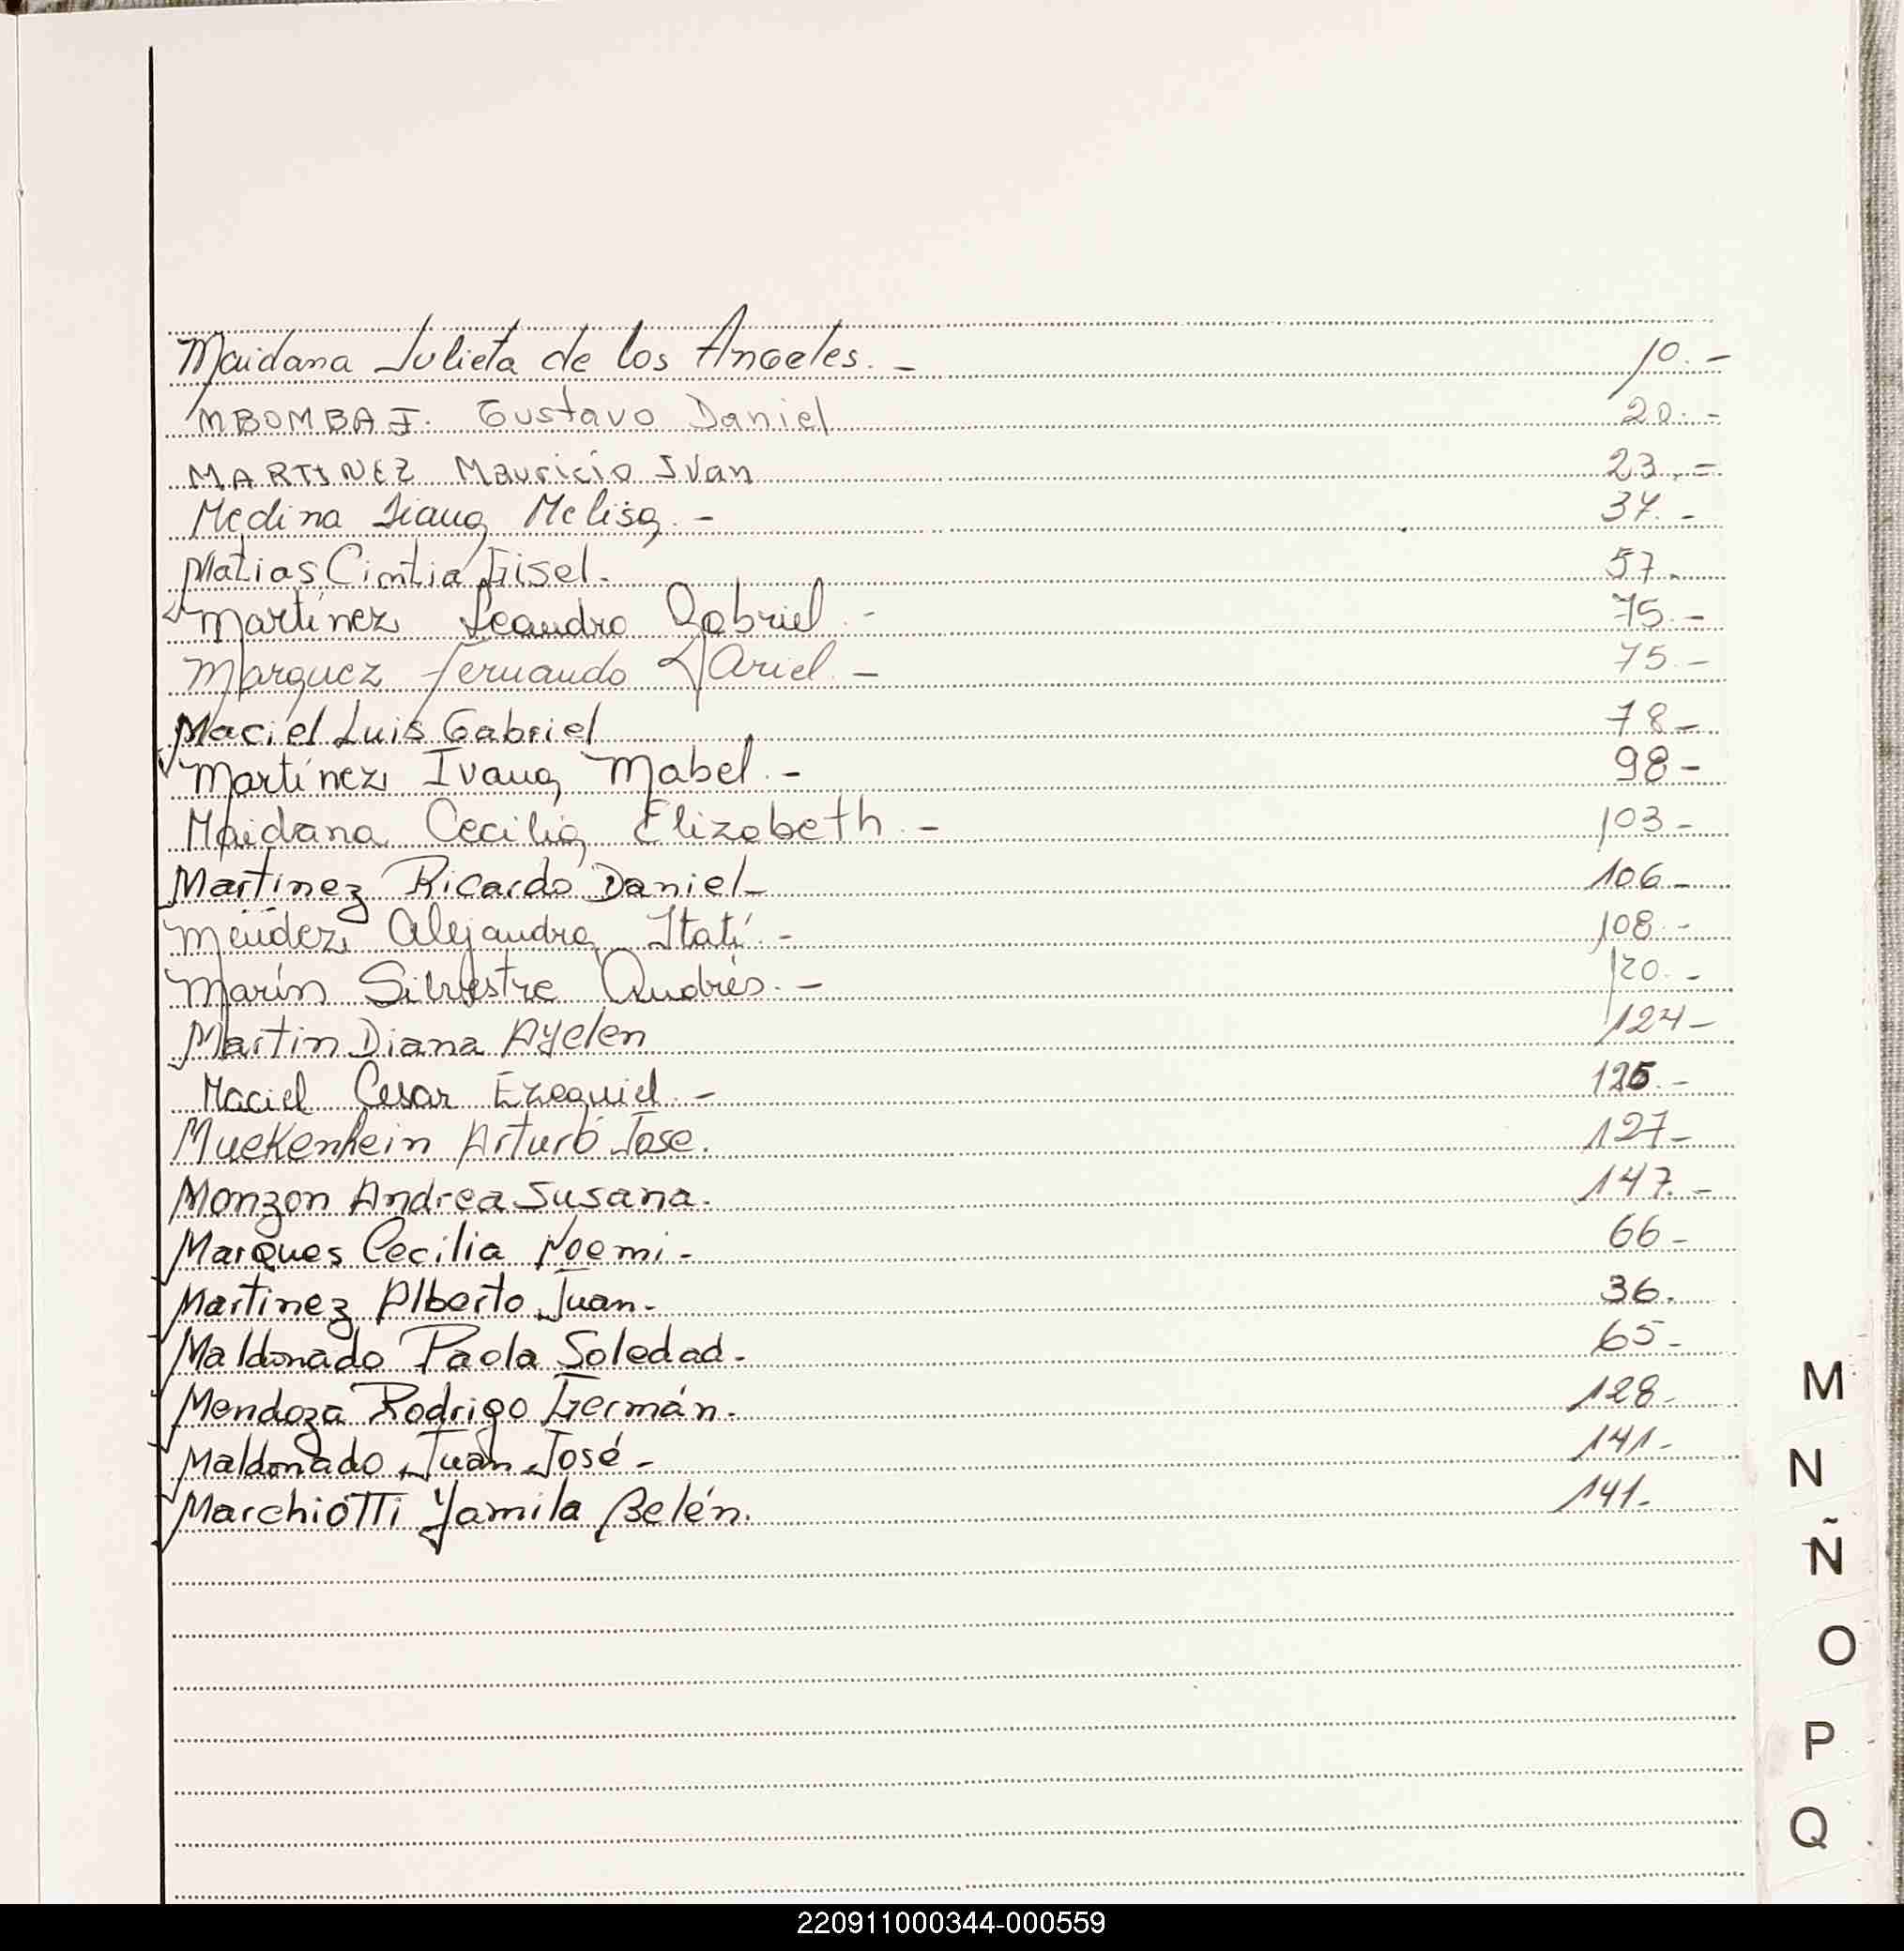 Maidana Julieta de los Angeles. - 10. -
MBOMBAJ. Gustavo Daniel 20. -
MARTINEZ Mauricio Ivan 23. -
Medina Melisa. - 37. -
Matias Cintia Gisel. 57.
Martínez Leandro Gabriel. - 75. -
Marquez Fernando Ariel. - 75. -
Maciel Luis Gabriel 78 -
Martínez Ivana Mabel. - 98 -
Maidana Cecilia Elizabeth. - 103 -
Martinez Ricardo Daniel - 106 -
Méndez Alejandra Itatí. - 108. -
Marín Silvestre Andrés. - 120. -
Martin Diana Ayelen 124 -
Maciel Cesar Ezequiel. - 125. -
Muekenhein Arturo Jose. 127 -
Monzon Andrea Susana. 147. -
Marques Cecilia Noemi - 66 -
Martinez Alberto Juan - 36.
Maldonado Paola Soledad - 65 -
Mendoza Rodrigo Germán. 128 -
Maldonado Juan José - 141 -
Marchiotti Yamila Belén. 141 -
M
N
Ñ
O
P
Q
220911000344-000559